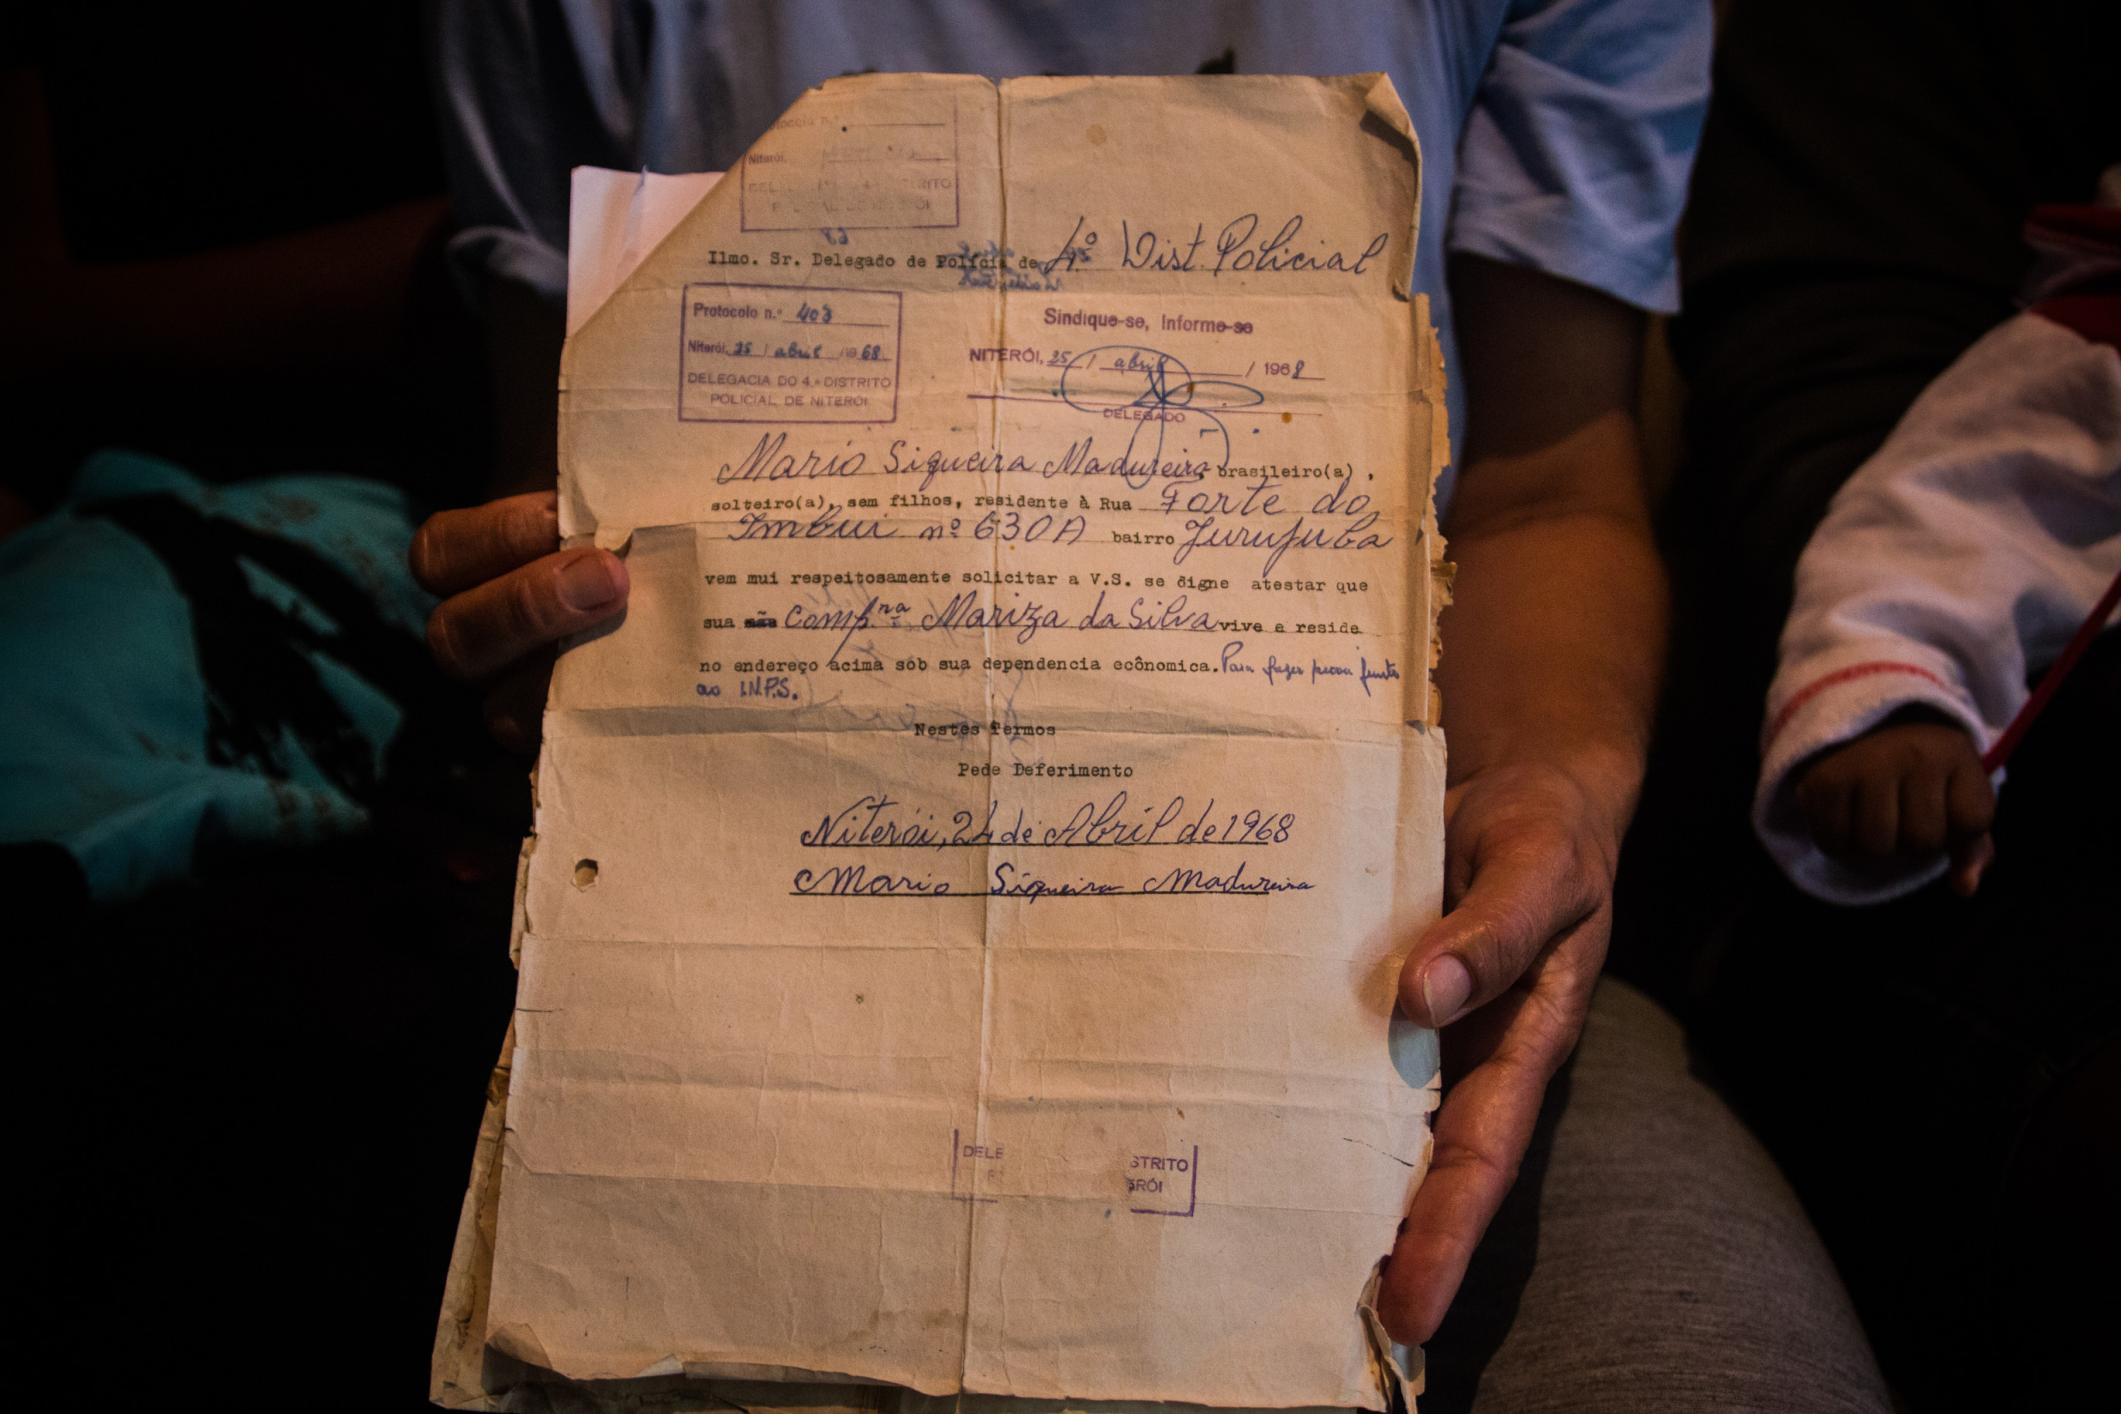 Niterói,
Ilmo. Sr. Delegado de Polícia de 4º Dist. Policial
Protocolo n.º 403
Niterói, 25 / abril / 1968
DELEGACIA DO 4.º DISTRITO
POLICIAL DE NITERÓI
Sindique-se, Informe-se
NITERÓI, 25 / abril / 1968
DELEGADO
Mario Siqueira Madureira brasileiro(a),
solteiro(a), sem filhos, residente à Rua Forte do
Imbuí nº 630A bairro Jurujuba
vem mui respeitosamente solicitar a V.S. se digne atestar que
sua mãe Comp.ra Mariza da Silva vive e reside
no endereço acima sob sua dependencia ecônomica. Para fazer prova junto
ao I.N.P.S.
Nestes Termos
Pede Deferimento
Niterói, 24 de Abril de 1968
Mario Siqueira Madureira
DELE STRITO
RÓI